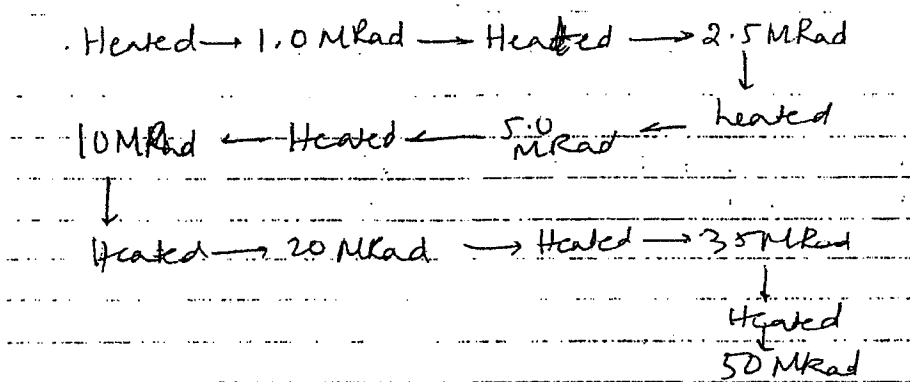 Heated → 1.0 MRad → Heated → 2.5 MRad
↓
10 MRad ← Heated ← 5.0 MRad ← heated
↓
Heated → 20 MRad → Heated → 35 MRad
↓
Heated
↓
50 MRad